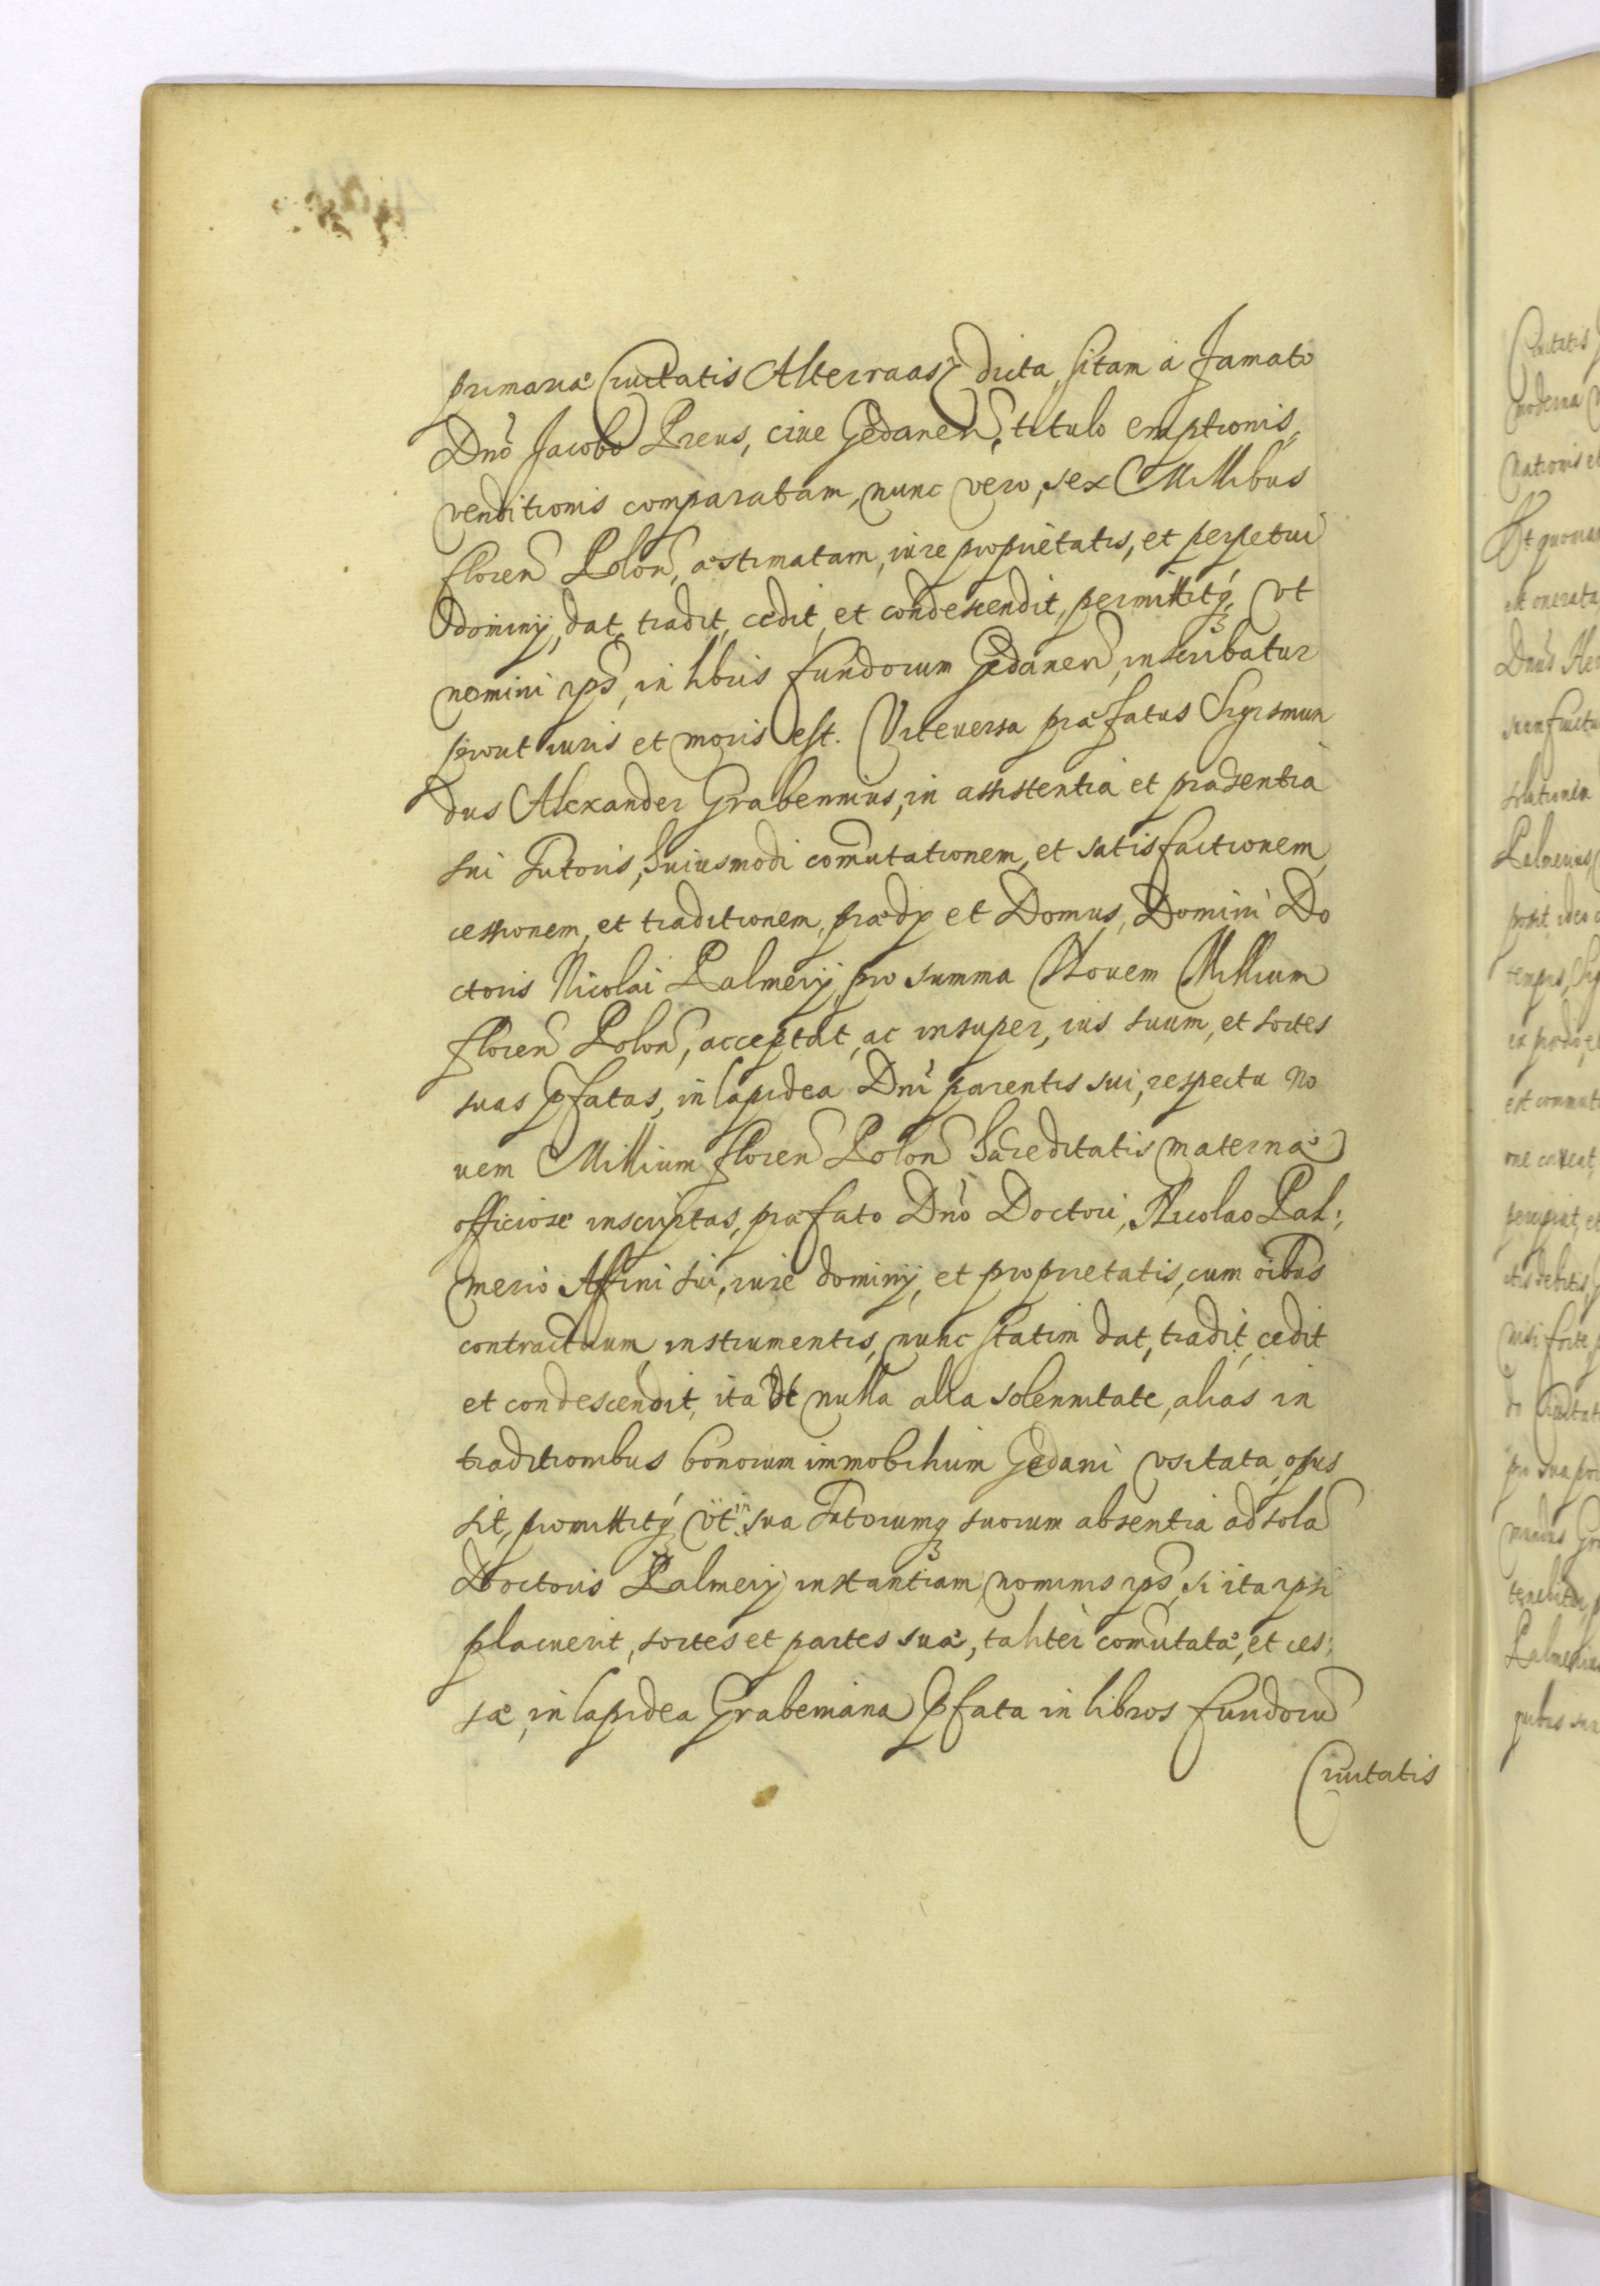 primariæ Ciuitatis Alterraasz dicta, sitam à Famato
Dnō Jacobo Preus, ciue Gedanen, titulo emptionis,
venditionis comparatam, nunc vero, sex Millibus
floren Polon, æstimatam, iure proprietatis, et perpetui
dominij, dat, tradit, cedit, et condescendit, permittitq, vt
nomini ips, in libris fundorum Gedanen, inscribatur
prout iuris et moris est. Viceuersa præfatus Sigismun
dus Alexander Grabennius, in assistentia et præsentia
sui Tutoris, huiusmodi comutationem, et satisfactionem,
cessionem, et traditionem, prædy et Domus, Domini Do
ctoris Nicolai Palmerij, pro summa Nouem Millium
floren Polon, acceptat, ac insuper, ius suum, et sortes
suas pfatas, in lapidea Dni parentis sui, respectu No
uem Millium floren Polon hæreditatis maternæ
officiose inscriptas, præfato Dnō Doctori, Nicolao Pal:
merio Affini sui, iure dominij, et proprietatis, cum oibus
contractuum instrumentis, nunc statim dat, tradit, cedit
et condescendit, ita vt nulla alia solennitate, alias in
traditionibus bonorum immobilium Gedani vsitata, opus
sit, promittitq vt in sua Tutorumq suorum absentia ad sola
Doctoris Palmerij instantiam, nominis ips, si ita ipsi
placuerit, sortes et partes suæ, taliter comutatæ, et ces:
sæ, in lapidea Grabeniana pfata in libros fundoru
Ciuitatis